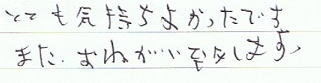 とても気持ちよかったです
また、おねがいいたします、